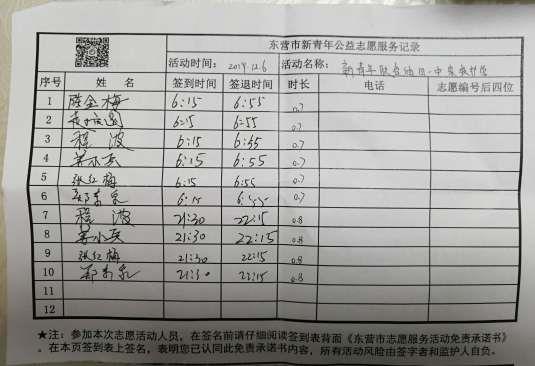 东营市新青年公益志愿服务记录
活动时间： 2019.12.6 活动名称： 新青年
序号 姓 名 签到时间 签退时间 时长 电话 志愿编号后四位
1 陈金梅 6:15 6:55 0.7
2 6:15 6:55 0.7
3 程波 6:15 6:55 0.7
4 6:15 6:55 0.7
5 张红梅 6:15 6:55 0.7
6 6:15 6:55 0.7
7 程波 21:30 22:15 0.8
8 21:30 22:15 0.8
9 张红梅 21:30 22:15 0.8
10 21:30 22:15 0.8
11
12
★注：参加本次志愿活动人员，在签名前请仔细阅读签到表背面《东营市志愿服务活动免责承诺书》
。在本页签到表上签名，表明您已认同此免责承诺书内容，所有活动风险由签字者和监护人自负。